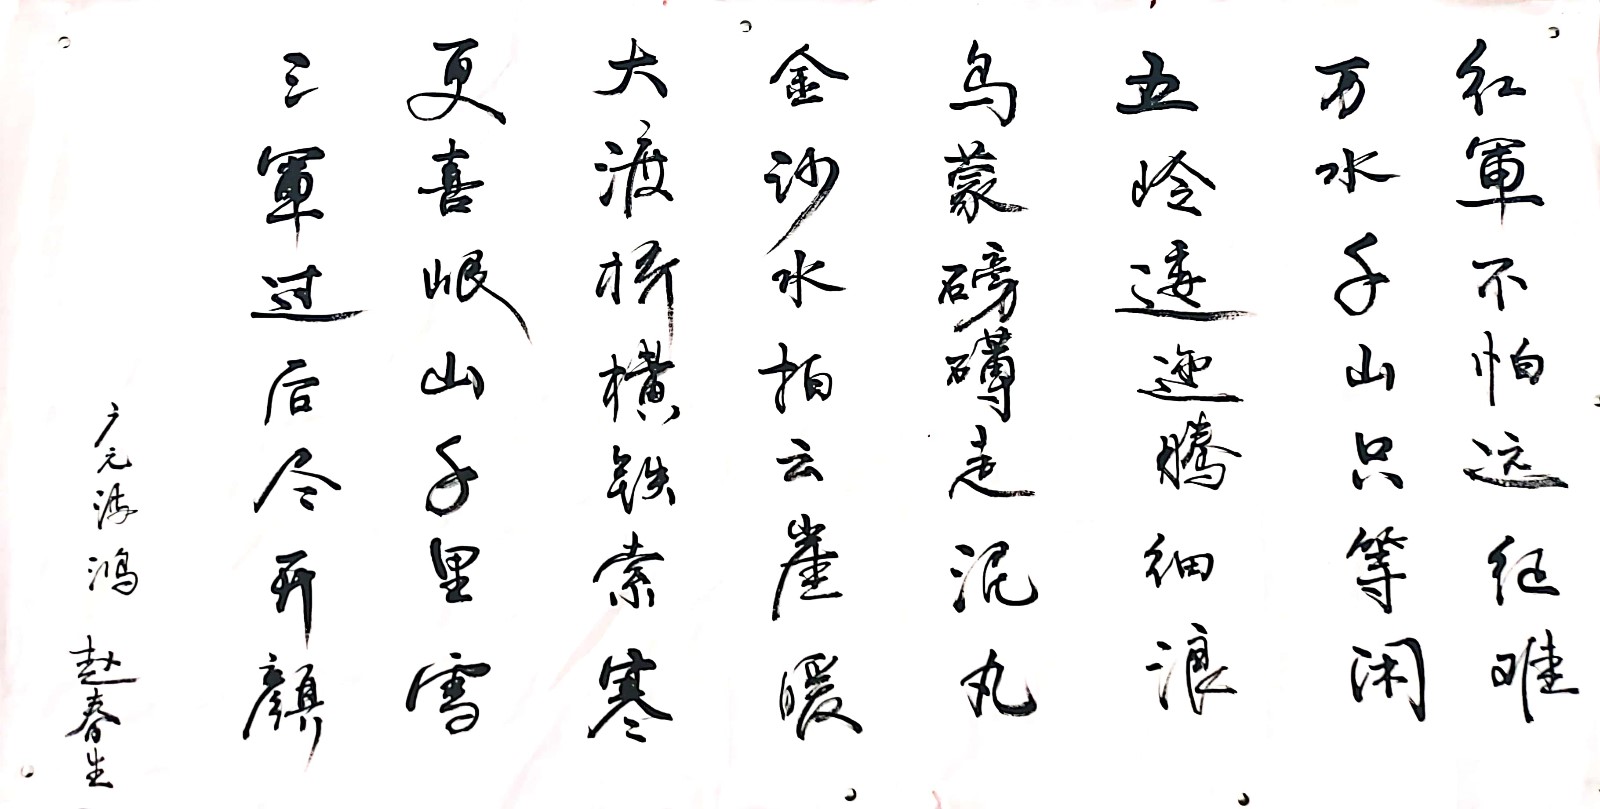 红軍不怕远征难
万水千山只等闲
五岭逶迤腾细浪
乌蒙磅礴走泥丸
金沙水拍云崖暖
大渡桥横铁索寒
更喜岷山千里雪
三軍过后尽开颜
广元海鸿 赵春生